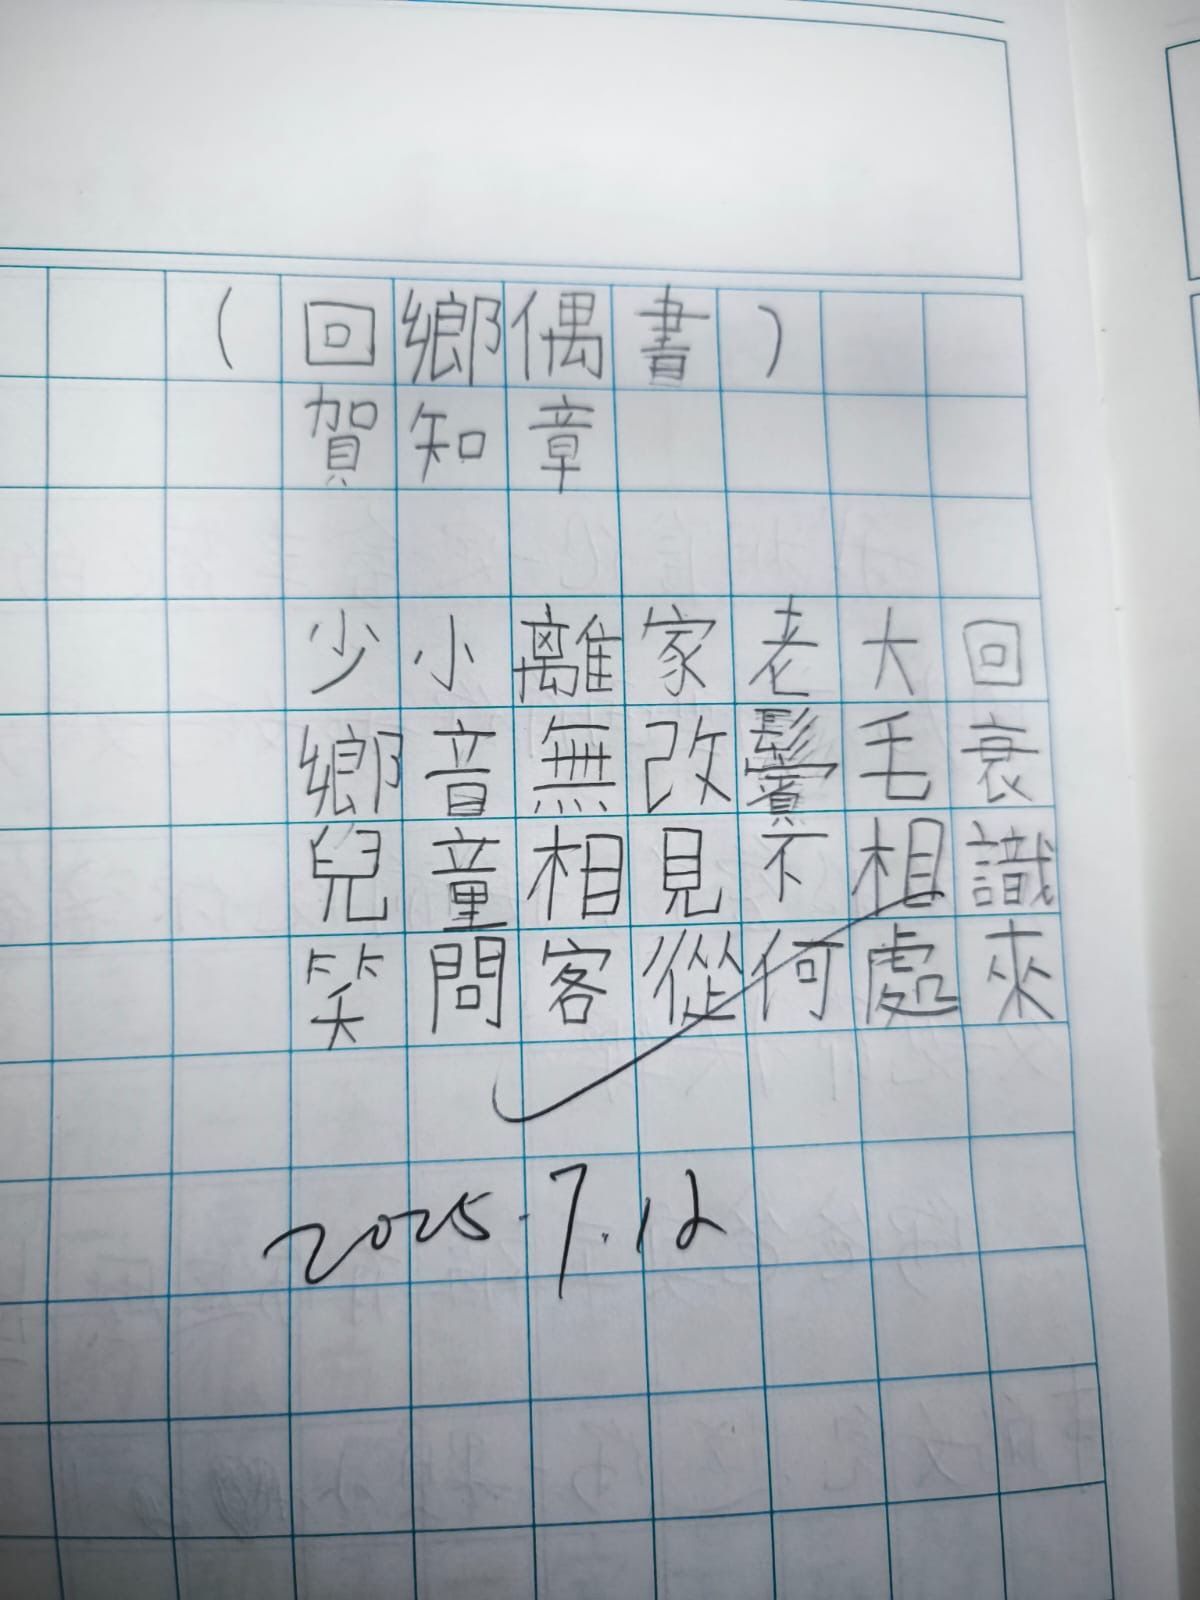 （回鄉偶書）
賀知章
少小離家老大回
鄉音無改鬢毛衰
兒童相見不相識
笑問客從何處來
2025.7.12